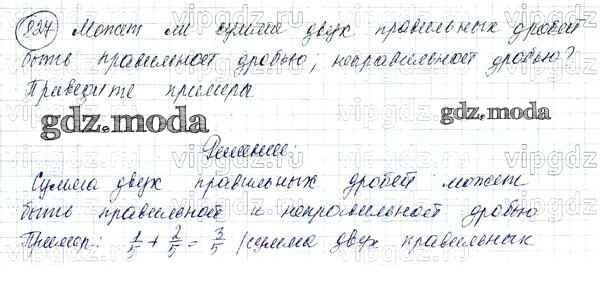 827 Может ли сумма двух правильных дробей
быть правильной дробью, неправильной дробью?
Приведите примеры
gdz.moda gdz.moda
Решение:
Сумма двух правильных дробей может
быть правильной и неправильной дробью
Пример: 1/5 + 2/5 = 3/5 (сумма двух правильных